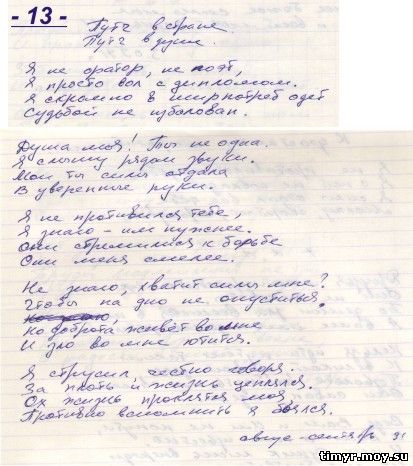 - 13 -
Путч в стране.
Путч в душе.
Я не оратор, не поэт,
Я просто вол с дипломом.
Я скромно в ширпотреб одет
Судьбой не избалован.
Душа моя! Ты не одна.
Я слышу рядом звуки.
Мои ты силы отдала
В уверенные руки.
Я не противился тебе,
Я знаю - им нужнее.
Они стремились к борьбе
Они меня смелее.
Не знаю, хватит силы мне?
Чтобы на дно не опуститься.
Но доброта живёт во мне
И зло во мне ютится.
Я струсил, честно говоря.
За плоть и жизнь цеплялся.
Ох жизнь проклятая моя,
Противно вспомнить я боялся.
август-сентябрь 91
timyr.moy.su